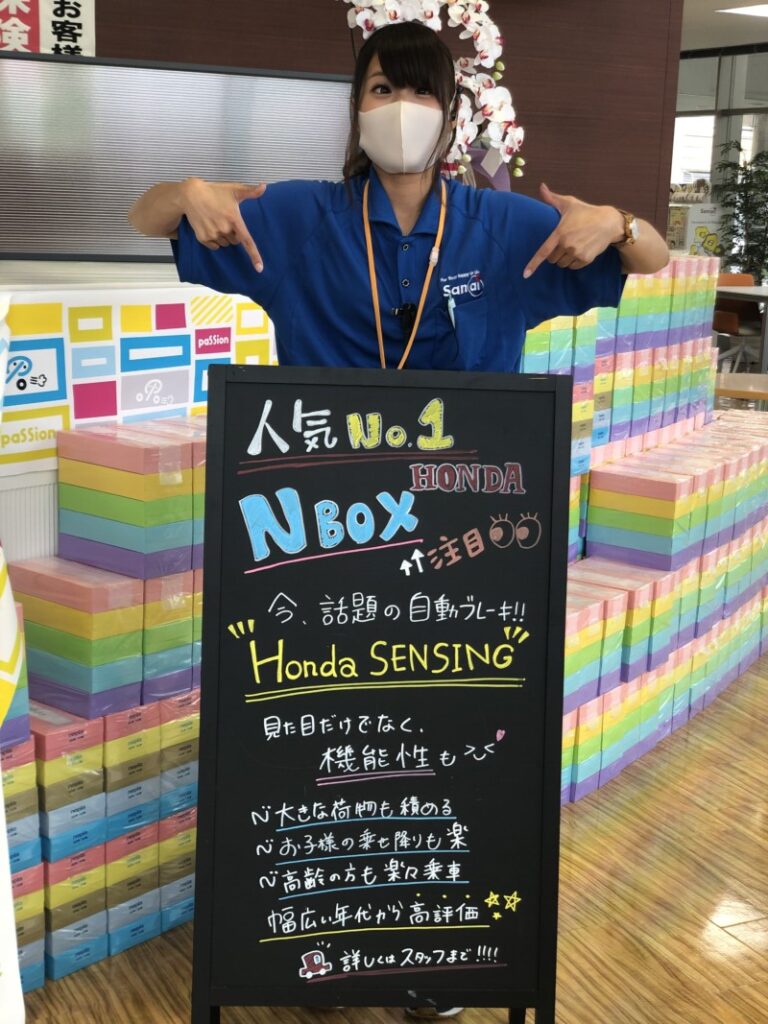 お客様
保険
passion
passion
Sanai
人気 No.1
HONDA
N BOX
↑↑注目
今、話題の自動ブレーキ!!
Honda SENSING
見た目だけでなく、
機能性も
大きな荷物も積める
お子様の乗せ降りも楽
高齢の方も楽々乗車
幅広い年代から高評価
詳しくはスタッフまで!!!!
nepia